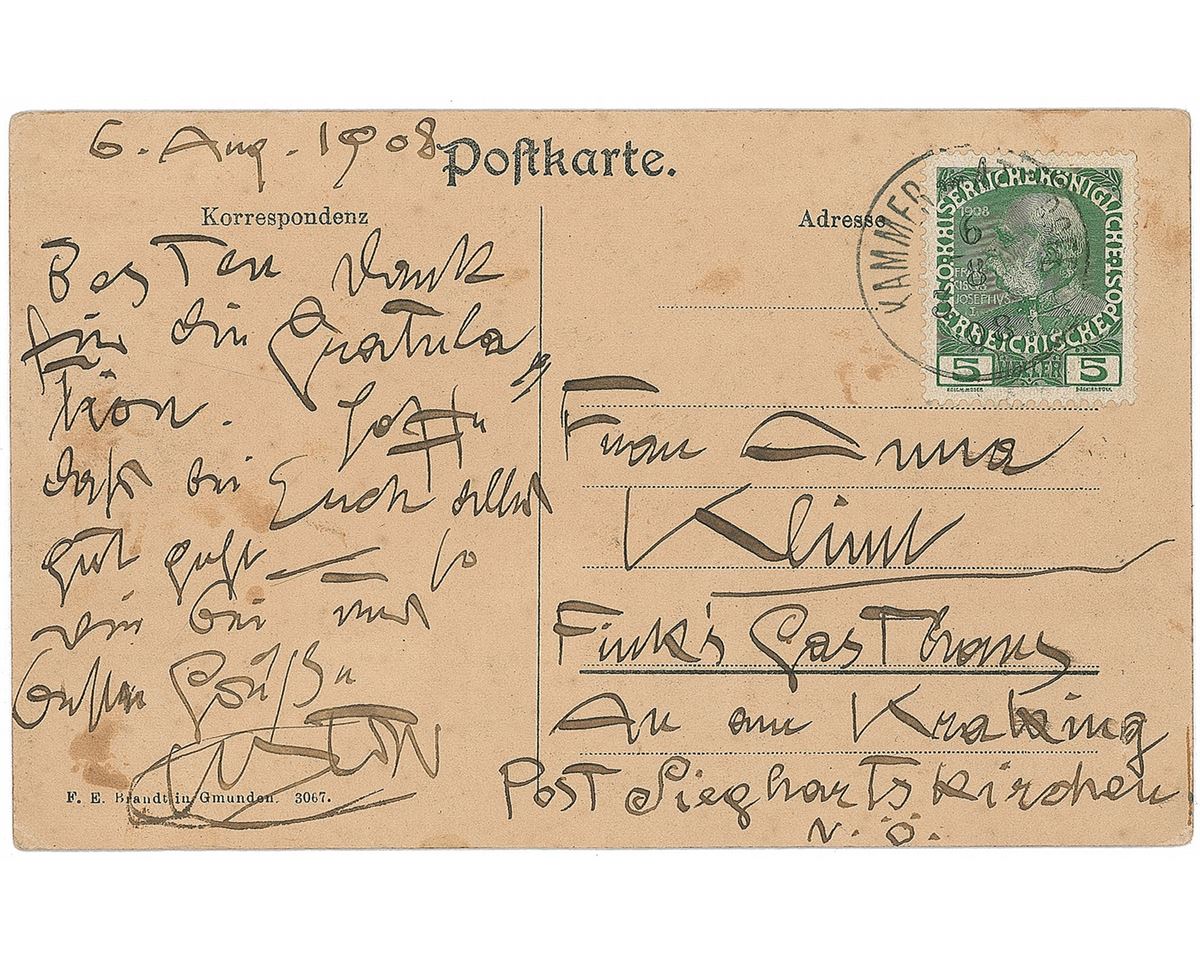 6. Aug. 1908
Postkarte.
Korrespondenz
Besten Dank
für die Gratula
tion. Hoffe
daß bei Euch alles
gut geht — so
wie bei uns
Besten Grüße
GUSTAV
F. E. Brandt in Gmunden. 3067.
Adresse
KAMMER
6
8
08
KAISERLICHE KÖNIGLICHE ÖSTERREICHISCHE POST
1908
FRANCISCVS
JOSEPHVS
I
5 HELLER 5
Frau Anna
Klimt
Fink's Gasthaus
Au am Kraking
Post Sieghartskirchen
N. Ö.